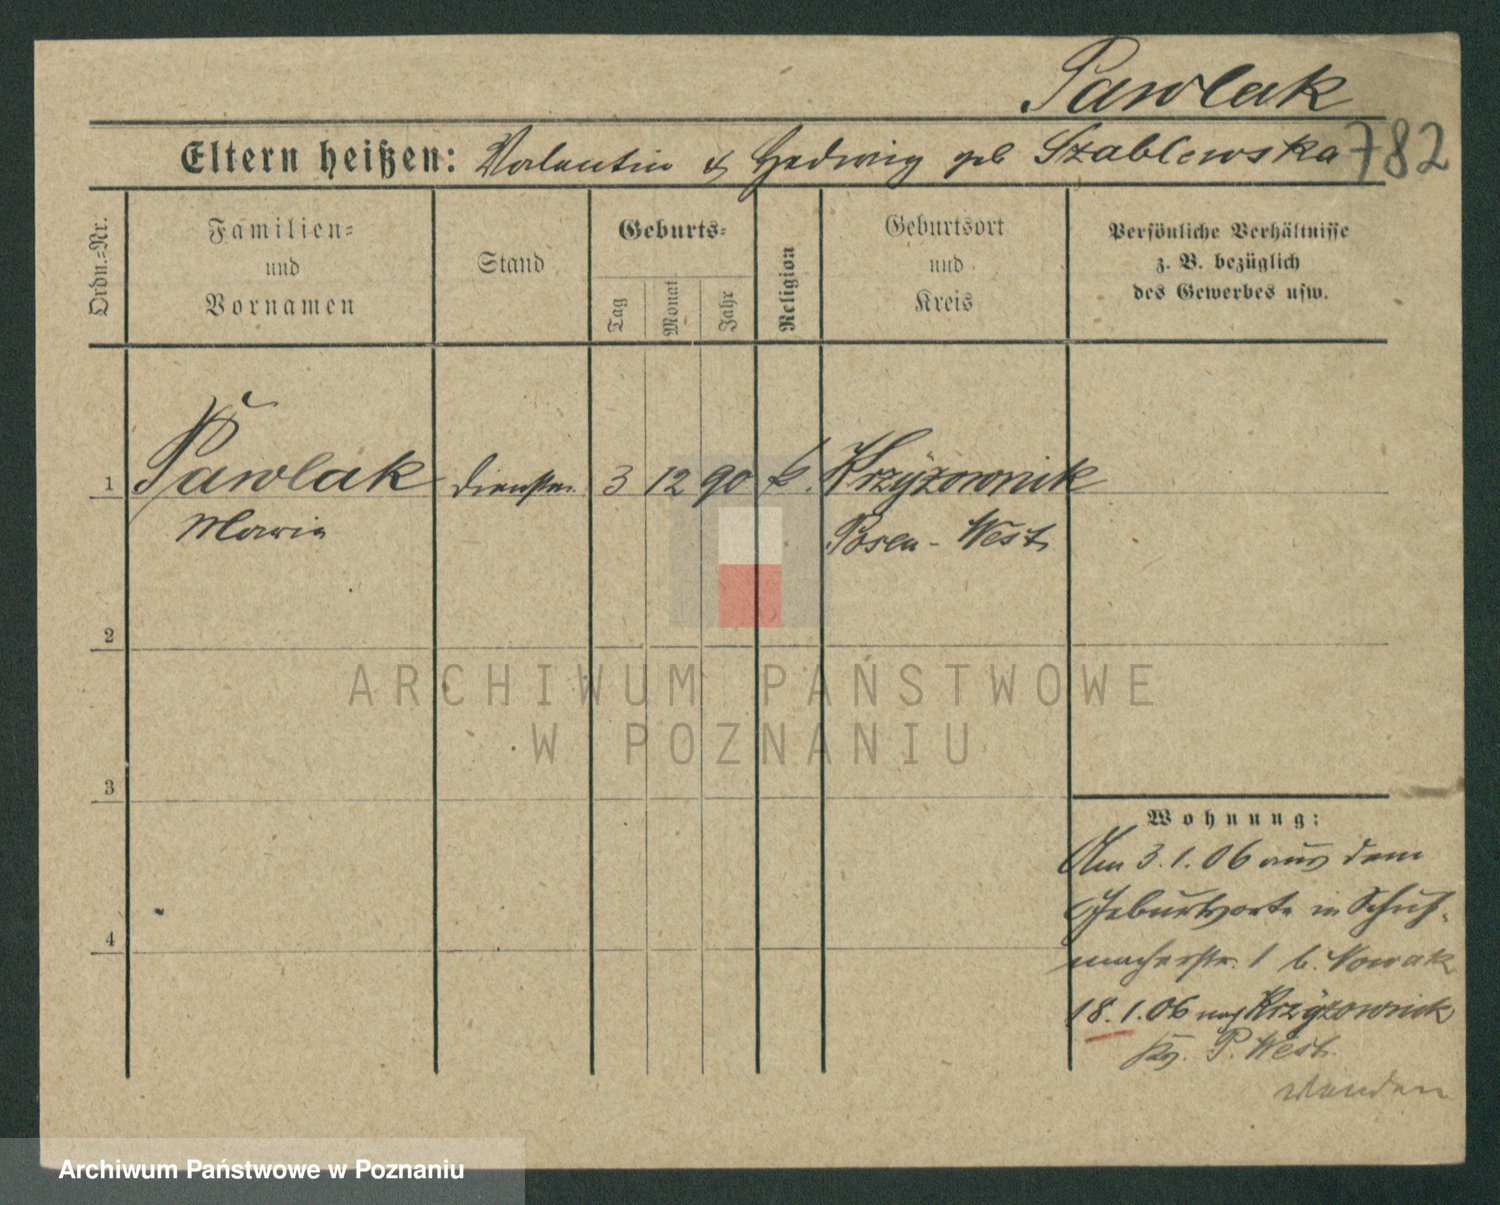 Pawlak
Eltern heißen: Valentin & Hedwig geb Szablewska 782
Ordn.-Nr.
Familien-
und
Vornamen
Stand
Geburts-
Tag
Monat
Jahr
Religion
Geburtsort
und
Kreis
Persönliche Verhältnisse
z. B. bezüglich
des Gewerbes usw.
1 Pawlak 3 12 90 k. Krzyżownik
Maria Posen-West
2
3
4
Wohnung:
Am 3.1.06 aus dem
Geburtsorte in Schuh-
macherstr. 1 b. Nowak
18.1.06 nach Krzyżownik
Kr. P. West.
wenden
ARCHIWUM PAŃSTWOWE
W POZNANIU
Archiwum Państwowe w Poznaniu